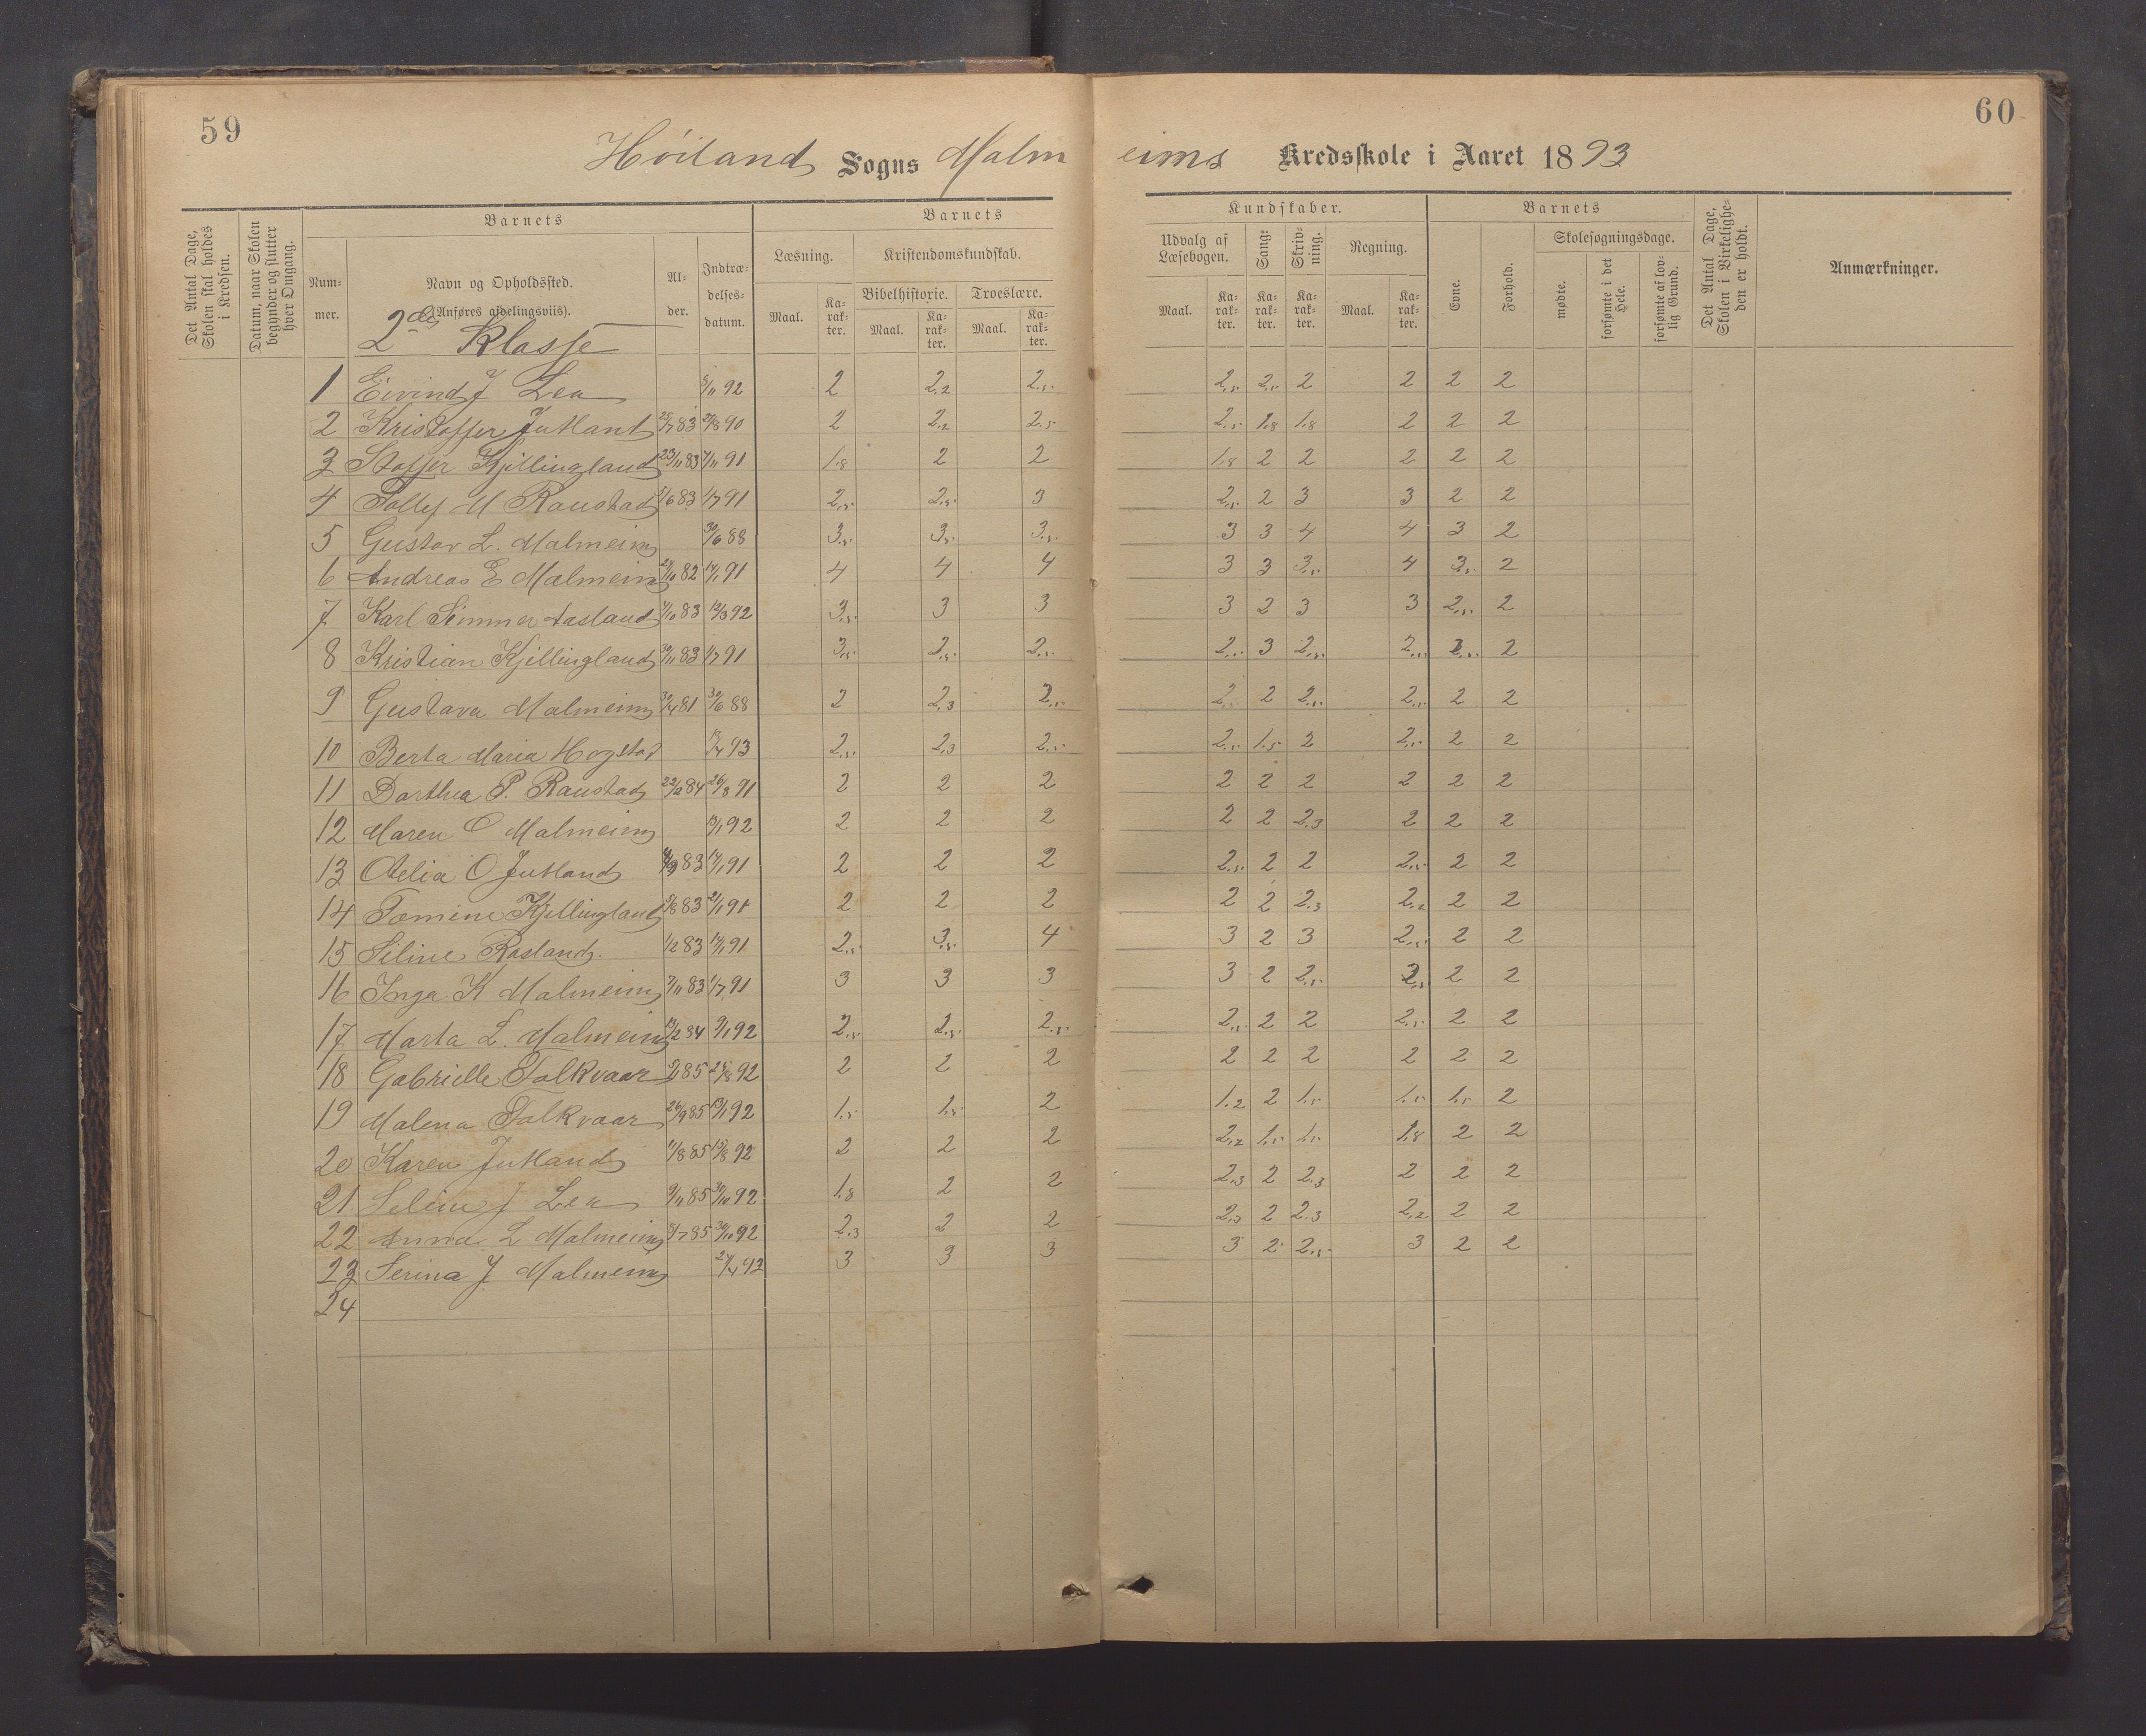 59
60
Höiland Sogns Malmeims Kredsskole i Aaret 1893
Det Antal Dage, Skolen skal holdes i Kredsen.
Datum, naar Skolen begynder og slutter hver Omgang.
Barnets
Nummer.
Navn og Opholdssted.
(Anføres afdelingsviis).
2den Klasse
Alder.
Indtrædelsesdatum.
Barnets
Læsning.
Kristendomskundskab.
Maal.
Karakter.
Bibelhistorie.
Troeslære.
Maal.
Karakter.
Maal.
Karakter.
Kundskaber.
Udvalg af Læsebogen.
Sang:
Skrivning.
Regning.
Maal.
Karakter.
Karakter.
Karakter.
Maal.
Karakter.
Barnets
Evne.
Forhold.
Skolesøgningsdage.
mødte.
forsømte i det Hele.
forsømte af lovlig Grund.
Det Antal Dage, Skolen i Virkeligheden er holdt.
Anmærkninger.
1 Eivind J Lea 5/11 92 2 2.2 2.5 2.5 2.5 2 2 2 2
2 Kristoffer Jutlant 25/7 83 21/8 90 2 2.2 2.5 2.5 1.8 1.8 2 2 2
3 Stoffer Kjillingland 23/11 83 7/11 91 1.8 2 2 1.8 2 2 2 2 2
4 Tolly M Raustad 5/6 83 1/7 91 2.5 2.5 3 2.5 2 3 3 2 2
5 Gustav L. Malmeim 30/6 88 3.5 3.5 3.5 3 3 4 4 3 2
6 Andreas E Malmeim 29/10 82 14/1 91 4 4 4 3 3 3.5 4 3.5 2
7 Karl Simmer Aasland 7/10 83 12/3 92 3.5 3 3 3 2 3 3 2.5 2
8 Kristian Kjillingland 30/11 83 1/7 91 3.5 2.5 2.5 2.5 3 2.5 2.5 2.5 2
9 Gustava Malmeim 30/4 81 30/6 88 2 2.3 2.5 2.5 2 2.5 2.5 2 2
10 Berta Maria Hogstad 12/4 93 2.5 2.3 2.5 2.5 1.5 2 2.5 2 2
11 Dorthea P. Raustad 22/2 84 26/8 91 2 2 2 2 2 2 2 2 2
12 Maren O Malmeim 13/1 92 2 2 2 2 2 2.3 2 2 2
13 Olelia O Jutland 83 14/1 91 2 2 2 2.5 2 2 2.5 2 2
14 Tomine Kjellingland 5/8 83 21/1 91 2 2 2 2 2 2.3 2.2 2 2
15 Siline Rosland. 1/2 83 14/1 91 2.5 3.5 4 3 2 3 2.5 2 2
16 Inga K Malmeim 7/11 83 1/7 91 3 3 3 3 2 2.5 2.5 2 2
17 Marta L. Malmeim 13/2 84 9/1 92 2.5 2.5 2.5 2.5 2 2 2.5 2 2
18 Gabrielle Folkvaar 85 24/8 92 2 2 2 2 2 2 2 2 2
19 Malena Folkvaar 26/9 85 13/1 92 1.5 1.5 2 1.2 2 1.5 1.5 1.5 2
20 Karen Jutland 11/8 85 15/8 92 2 2 2 2.2 1.5 1.5 1.8 2 2
21 Seline J Lea 9/11 85 30/10 92 1.8 2 2 2.3 2 2.3 2 2 2
22 Anna L Malmeim 8/7 85 30/10 92 2.3 2 2 2.3 2 2.3 2.2 2 2
23 Serina J Malmeim 24/4 93 3 3 3 3 2 2.5 3 2 2
24